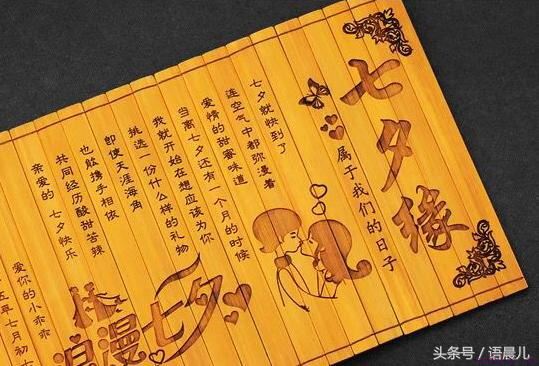 七夕缘
属于我们的日子
七夕就快到了
连空气中都弥漫着
爱情的甜蜜味道
当离七夕还有一个月的时候
我就开始在想应该为你
挑选一份什么样的礼物
即使天涯海角
也敌携手相依
共同经历酸甜苦辣
亲爱的 七夕快乐
爱你的小乖乖
五年七月初七
浪漫七夕
头条号 / 语晨儿